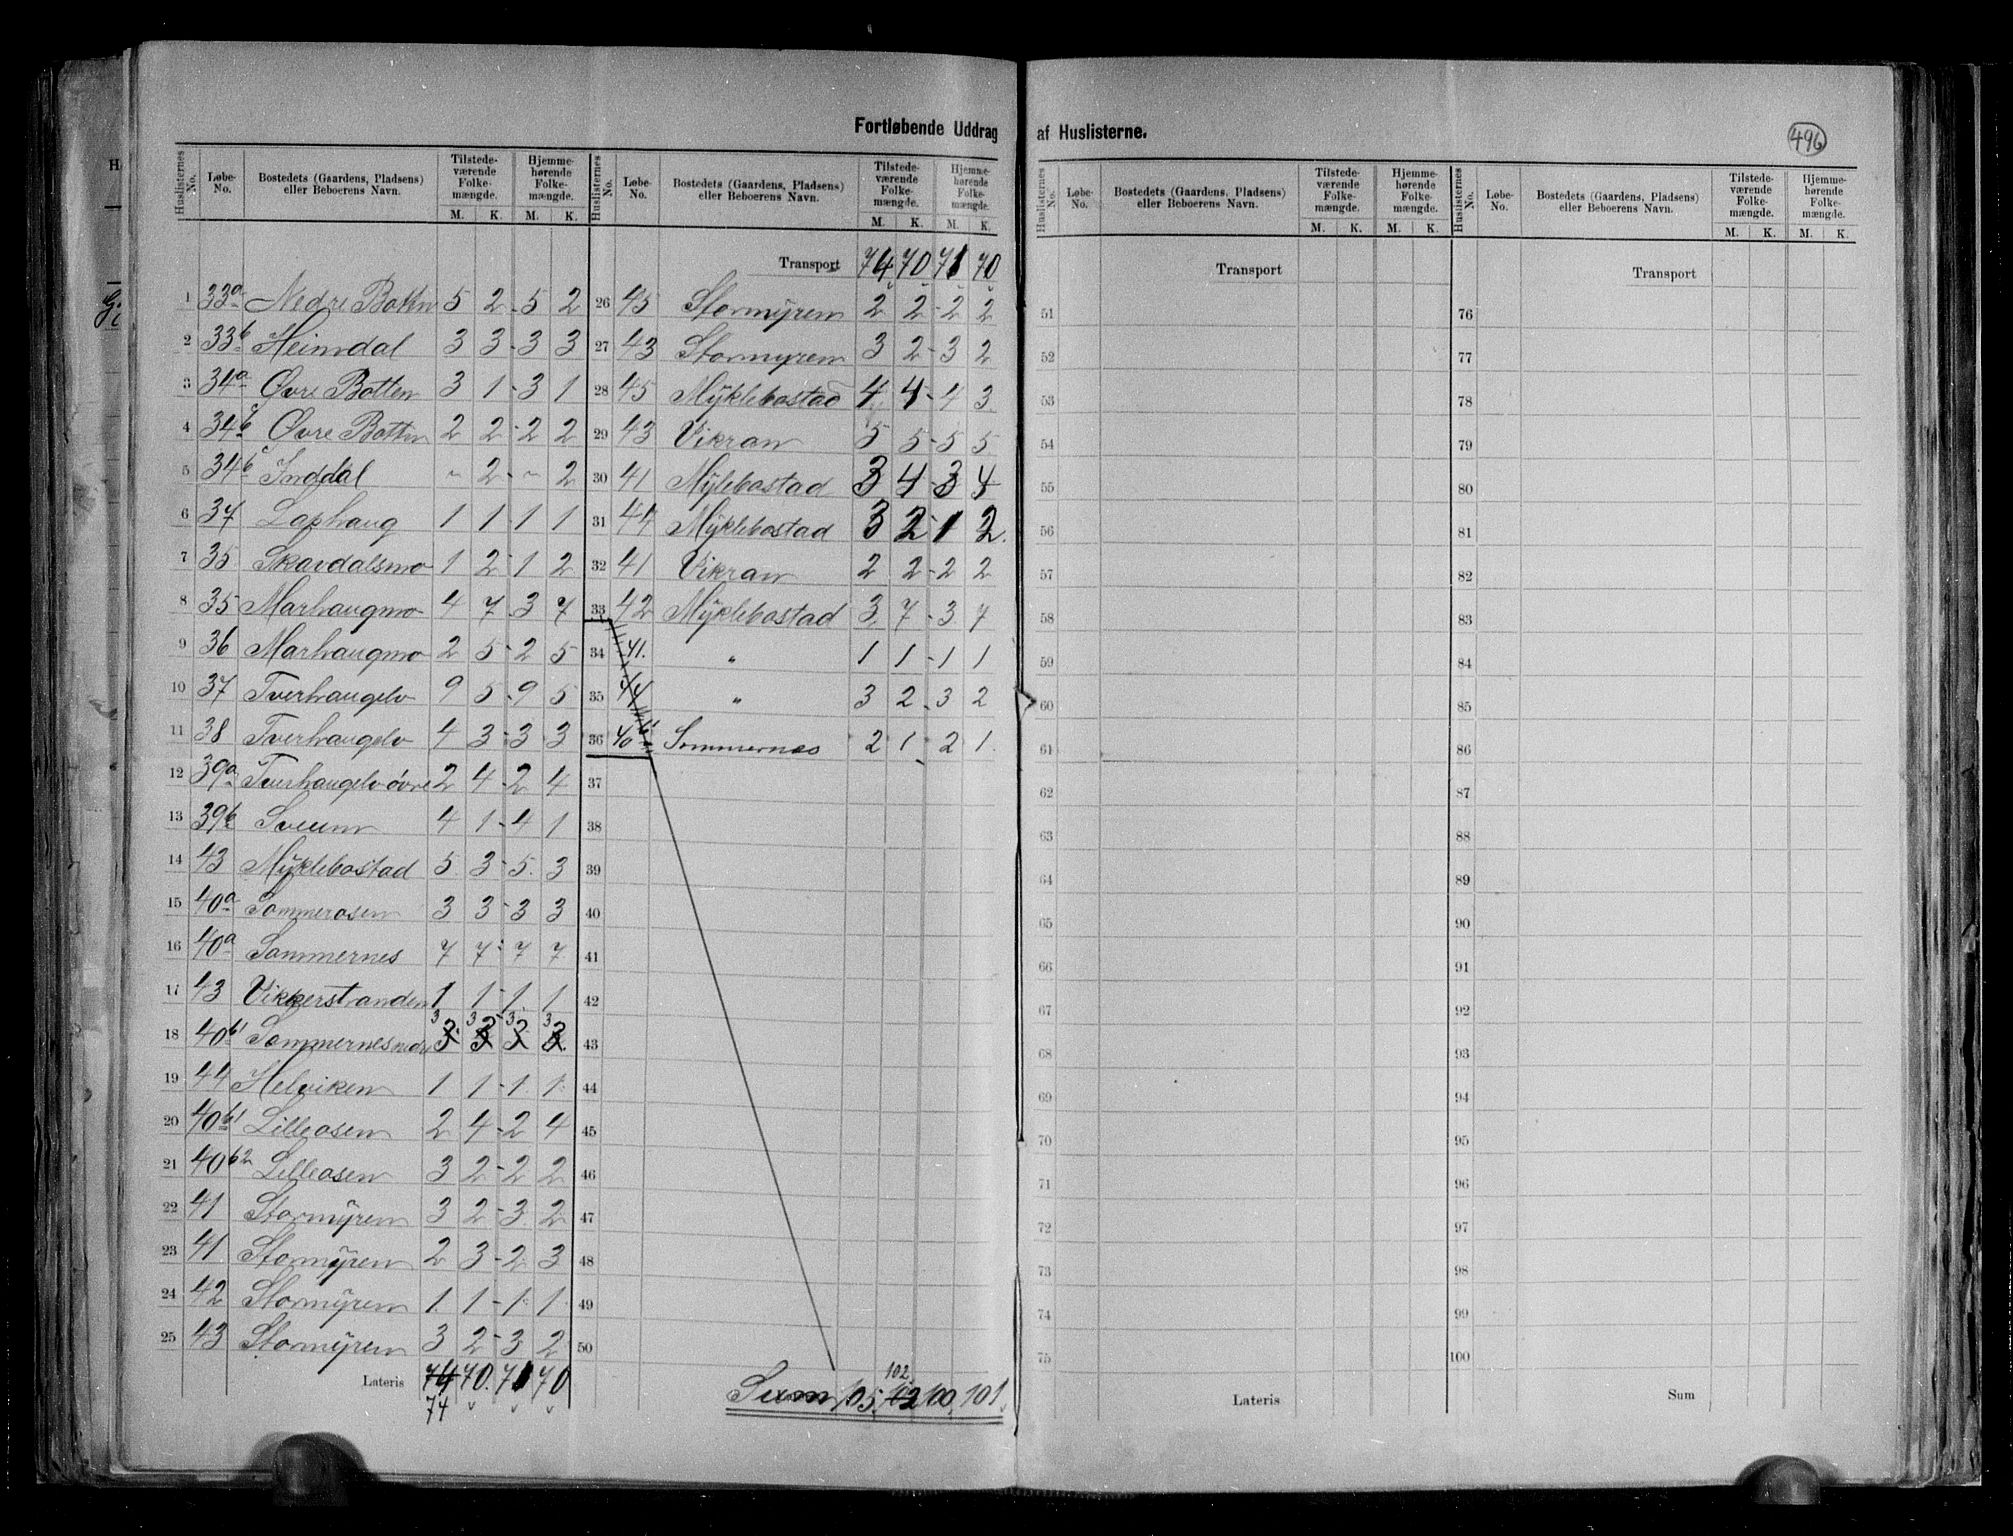 Fortløbende Uddrag af Huslisterne.
496
Huslisternes No. Løbe-No. Bostedets (Gaardens, Pladsens) eller Beboerens Navn. Tilstedeværende Folkemængde. M. K. Hjemmehørende Folkemængde. M. K.
1 33a Nedre Botten 5 2 - 5 2
2 33b Heimdal 3 3 - 3 3
3 34a Øvre Botten 3 1 - 3 1
4 34b Øvre Botten 2 2 - 2 2
5 34b Inddal ~ 2 - ~ 2
6 37 Laphaug 1 1 1 1
7 35 Skavdalsmo 1 2 - 1 2
8 35 Marhaugmo 4 7 3 7
9 36 Marhaugmo 2 5 - 2 5
10 37 Tverhaugelv 9 5 - 9 5
11 38 Tverhaugelv 4 3 - 3 3
12 39a Tverhaugelv övre 2 4 - 2 4
13 39b Sveum 4 1 - 4 1
14 43 Myklebostad 5 3 - 5 3
15 40a Sommerosen 3 3 - 3 3
16 40a Sommernes 7 7 - 7 7
17 43 Vikkerstranden 1 1 - 1 1
18 40b1 Sommernes nedre 3 3 - 3 3
19 44 Helviken 1 1 - 1 1
20 40b1 Lilleosen 2 4 - 2 4
21 40b2 Lilleosen 3 2 - 2 2
22 41 Stormyren 3 2 - 3 2
23 41 Stormyren 2 3 - 2 3
24 42 Stormyren 1 1 - 1 1
25 43 Stormyren 3 2 - 3 2
Lateris 74 70 71 70
74
Huslisternes No. Løbe-No. Bostedets (Gaardens, Pladsens) eller Beboerens Navn. Tilstedeværende Folkemængde. M. K. Hjemmehørende Folkemængde. M. K.
Transport 74 70 71 70
26 45 Stormyren 2 2 - 2 2
27 43 Stormyren 3 2 - 3 2
28 45 Myklebostad 4 4 - 4 3
29 43 Vikran 5 5 - 5 5
30 41 Mylebostad 3 4 - 3 4
31 44 Myklebostad 3 2 - 1 2
32 41 Vikran 2 2 - 2 2
33 42 Myklebostad 3 7 - 3 7
34 41 " 1 1 - 1 1
35 44 " 3 2 - 3 2
36 40b1 Sommernes 2 1 2 1
37
38
39
40
41
42
43
44
45
46
47
48
49
50
102
Sum 105 102 100 101
Huslisternes No. Løbe-No. Bostedets (Gaardens, Pladsens) eller Beboerens Navn. Tilstedeværende Folkemængde. M. K. Hjemmehørende Folkemængde. M. K.
Transport
51
52
53
54
55
56
57
58
59
60
61
62
63
64
65
66
67
68
69
70
71
72
73
74
75
Lateris
Huslisternes No. Løbe-No. Bostedets (Gaardens, Pladsens) eller Beboerens Navn. Tilstedeværende Folkemængde. M. K. Hjemmehørende Folkemængde. M. K.
Transport
76
77
78
79
80
81
82
83
84
85
86
87
88
89
90
91
92
93
94
95
96
97
98
99
100
Sum